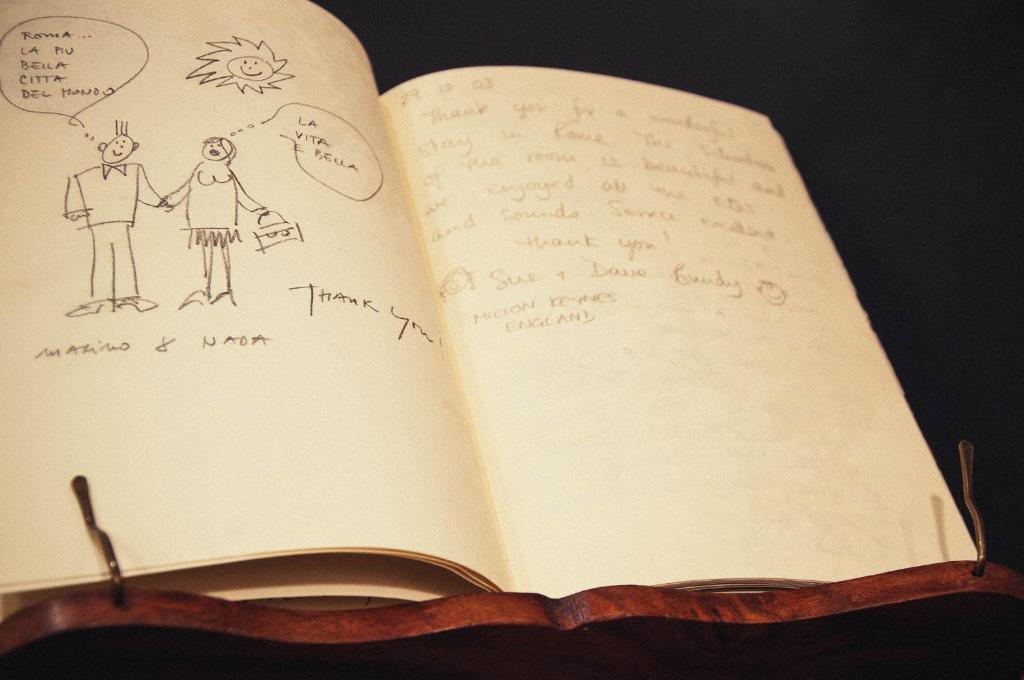 ROMA...
LA PIU
BELLA
CITTA
DEL MONDO
LA
VITA
E BELLA
THANK YOU!
MARINO & NADA
29 10 03
Thank you for a wonderful
stay in Rome The Situation
of the room is beautiful and
we enjoyed all the
and sounds. Service excellent.
thank you!
Sue + Dave Bundy
MILTON KEYNES
ENGLAND